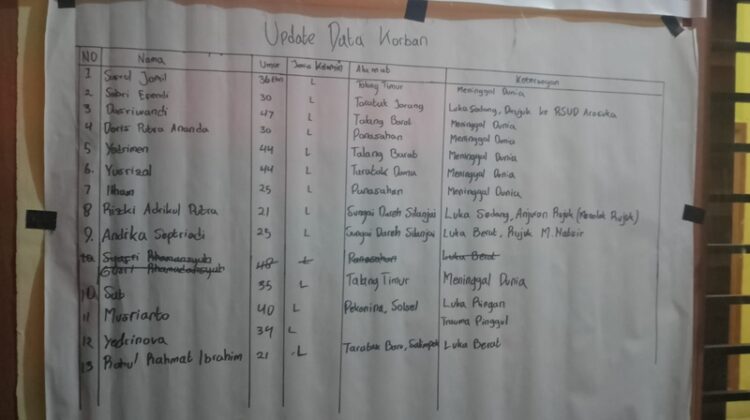 Update Data Korban
NO Nama Umur Jenis Kelamin Alamat Keterangan
1 Sasrul Jamil 36 thn L Talang Timur Meninggal Dunia
2 Sabri Ependi 30 L Taratak Jarang Luka Sedang, Dirujuk ke RSUD Arosuka
3 Dasriwandi 47 L Talang Barat Meninggal Dunia
4 Doris Putra Ananda 30 L Panasahan Meninggal Dunia
5 Yedrimen 44 L Talang Barat Meninggal Dunia
6. Yusrizal 44 L Taratak Meninggal Dunia
7 Ilham 25 L Panasahan Meninggal Dunia
8 Rizki Adrikul Putra 21 L Sungai Dareh Silanjai Luka Sedang, Anjuran Rujuk (Menolak Rujuk)
9. Andika Septriadi 25 L Sungai Dareh Silanjai Luka Berat, Rujuk M. Natsir
10 48 L Panasahan Luka Berat
10 Sab 35 L Talang Timur Meninggal Dunia
11 Musrianto 40 L Pekonina, Solsel Luka Ringan
12 Yedrinova 34 L Trauma Pinggul
13 Rahul Rahmat Ibrahim 21 L Taratak Baru, Luka Berat